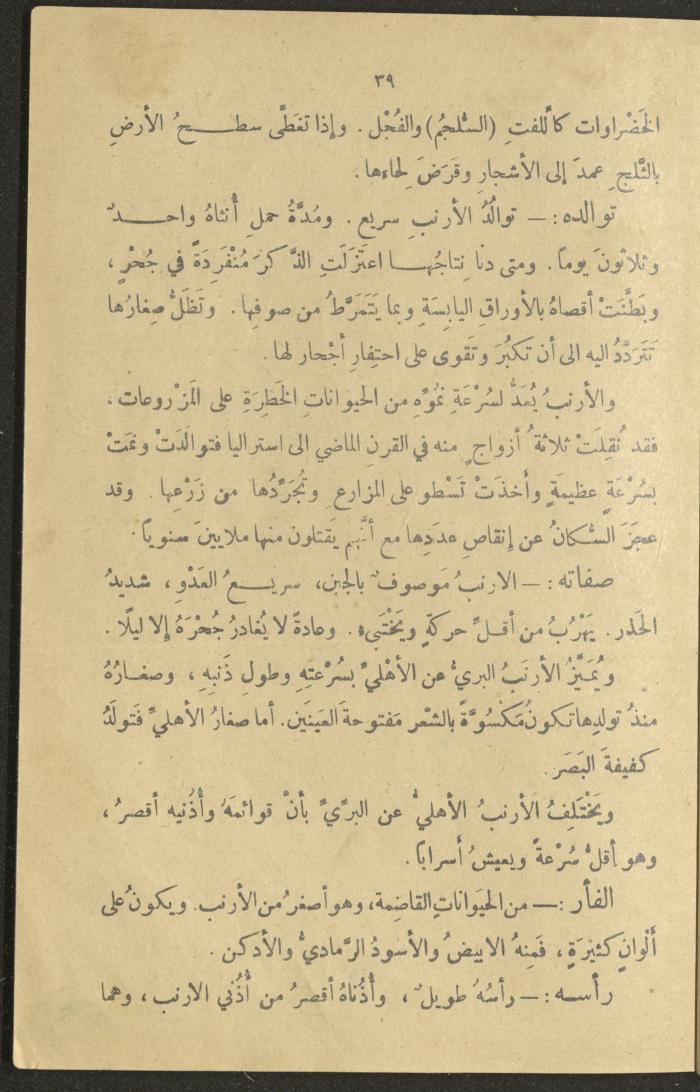 ٣٩
الخَضْراوات كاللفتِ (السُّلجمُ) والفُجْل . وإذا تغطَّى سطـــحُ الأرضِ
بالثَّلجِ عمدَ إلى الأشجارِ وقَرَضَ لِحاءها .
توالده : — توالُدُ الأرنبِ سريع . ومُدَّةُ حملِ أُنثاهُ واحـــدٌ
وثلاثونَ يوماً . ومتى دنا نِتاجُهـا اعتزَلَتِ الذَّكرَ مُنْفَرِدَةً في جُحْرٍ ،
وبَطَّنَتْ أقصاهُ بالأوراقِ اليابِسَةِ وبما يَتَمَرَّطُ من صوفِها . وتَظَلُّ صِغارُها
تَتَرَدَّدُ اليه الى أن تكبُرَ وتَقوى على احتِفارِ أجْحار لها .
والأرنبُ يُعَدُّ لسُرْعَةِ نُمُوِّهِ من الحيواناتِ الخَطِرَةِ على المَزْروعات ،
فقد نُقِلَتْ ثلاثةُ أزواجٍ منه في القرنِ الماضي الى استراليا فتوالَدَتْ ونمَتْ
بسُرْعَةٍ عظيمَةٍ وأخذَتْ تَسْطو على المزارعِ وتُجَرِّدُها من زَرْعِها . وقد
عجَزَ السُّكانُ عن إنقاصِ عدَدِها مع أنَّهم يَقتلون منها ملايينَ سنوياً .
صفاته : — الارنبُ مَوصوفٌ بالجبن، سريـــعُ العَدْوِ ، شديدُ
الحَذر . يَهْرُبُ من أقـلِّ حركةٍ ويَخْتَبيء . وعادةً لا يُغادرُ جُحْرَهُ إلا ليلًا .
ويُمَـيَّزُ الأرنَبُ البريُّ عن الأهْليِّ بسُرْعَتِهِ وطولِ ذَنبِهِ ، وصغـارُهُ
منذُ تولدِها تكونُ مَكْسُوَّةً بالشَّعر مَفتوحةَ العَينَين . أما صغارُ الأهليِّ فتَولَدُ
كفيفةَ البَصَر .
ويَخْتَلِفُ الأرنبُ الأهليُّ عن البرِّيِّ بأنَّ قوائمَهُ وأُذُنيه أقصرُ ،
وهو أقلُّ سُرْعةً ويعيشُ أسراباً .
الفأر : — من الحيَواناتِ القاضِمة ، وهو أصغرُ من الأرنب . ويكونُ على
أَلْوانٍ كثيرَةٍ ، فمِنهُ الابيضُ والأسودُ الرَّماديُّ والأدكن .
رأسـه : — رأسُهُ طويلٌ ، وأُذُناهُ أقصرُ من أُذُني الارنب ، وهما